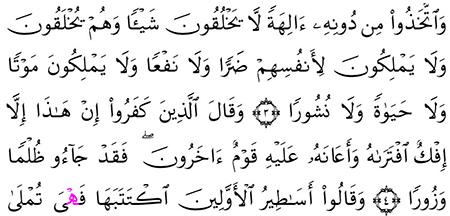 وَٱتَّخَذُوا۟ مِن دُونِهِۦٓ ءَالِهَةً لَّا يَخْلُقُونَ شَيْـًٔا وَهُمْ يُخْلَقُونَ
وَلَا يَمْلِكُونَ لِأَنفُسِهِمْ ضَرًّا وَلَا نَفْعًا وَلَا يَمْلِكُونَ مَوْتًا
وَلَا حَيَوٰةً وَلَا نُشُورًا ﴿٣﴾ وَقَالَ ٱلَّذِينَ كَفَرُوٓا۟ إِنْ هَـٰذَآ إِلَّآ
إِفْكٌ ٱفْتَرَىٰهُ وَأَعَانَهُۥ عَلَيْهِ قَوْمٌ ءَاخَرُونَ ۖ فَقَدْ جَآءُو ظُلْمًا
وَزُورًا ﴿٤﴾ وَقَالُوٓا۟ أَسَـٰطِيرُ ٱلْأَوَّلِينَ ٱكْتَتَبَهَا فَهِىَ تُمْلَىٰ